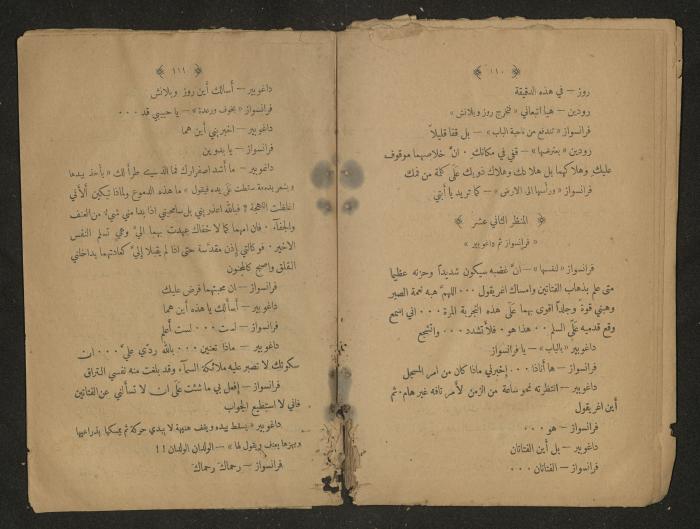 ﴿ ١١٠ ﴾
روز – في هذه الدقيقة
رودين – هيا اتبعاني « تخرج روز وبلانش »
فرانسواز « تندفع من ناحية الباب » – بل قفا قليلاً
رودين « يعترضها » – قفي في مكانك . انَّ خلاصهما موقوف
عليك وهلاكهما بل هلاكك وهلاك ذويك على كلمة من فمك
فرانسواز « ورأسها الى الارض » – كما تريد يا أبتي
﴿ المنظر الثاني عشر ﴾
« فرانسواز ثم داغوبير »
فرانسواز « لنفسها » – انَّ غضبه سيكون شديداً وحزنه عظيما
متى علم بذهاب الفتاتين وامساك اغريقول ٠٠٠ اللهمَّ هبه نعمة الصبر
وهبني قوة وجلداً اقوى بهما على هذه التجربة المرة ٠٠٠ اني اسمع
وقع قدميه على السلم ٠٠ هذا هو ٠ فلأتشدد ٠٠٠ واتشجع
داغوبير « بالباب » – يا فرانسواز
فرانسواز – ها أناذا ٠٠٠ إخبرني ماذا كان من امر المسجل
داغوبير – انتظرته نحو ساعة من الزمن لأمر تافه غير هام . ثم
أين اغريقول
فرانسواز – هو ٠٠٠
داغوبير – بل أين الفتاتان
فرانسواز – الفتاتان ٠٠٠
﴿ ١١١ ﴾
داغوبير – أسألك أين روز وبلانش
فرانسواز « بخوف ورعدة » – يا حبيبي قد ٠٠٠
داغوبير – اخبريني أين هما
فرانسواز – يا بدوين
داغوبير – ما أشد اصفرارك فما الذي طرأ لك « يأخذ بيدها
ويشعر بدمعة سقطت على يده فيقول » ما هذه الدموع ولماذا تبكين ألأني
اغلظت اللهجة ؟ فبالله اعذريني بل سامحيني اذا بدا مني شيء من العنف
والجفاء . فان امهما كما لا خفاك عهدت بهما اليَّ وهي تسلم النفس
الاخير . فوكالتي إذن مقدَّسة حتى اذا لم يقبلا إليَّ كعادتهما يداخلني
القلق واصبح كالمجنون
فرانسواز – ان محبتهما فرض عليك
داغوبير – أسألك يا هذه أين هما
فرانسواز – لست ٠٠٠ لست أعلم
داغوبير – ماذا تعنين ٠٠٠ بالله ردّي عليَّ ٠٠٠ ان
سكوتك لا تصبر عليه ملائكة السماء وقد بلغت منه نفسي التراق
فرانسواز – إفعل بي ما شئت على ان لا تسألني عن الفتاتين
فاني لا استطيع الجواب
داغوبير « يسقط بيده ويقف هنيهة لا يبدي حركة ثم يمسكها بذراعيها
ويهزها بعنف ويقول لها » – الولدان الولدان !!
فرانسواز – رحماك رحماك